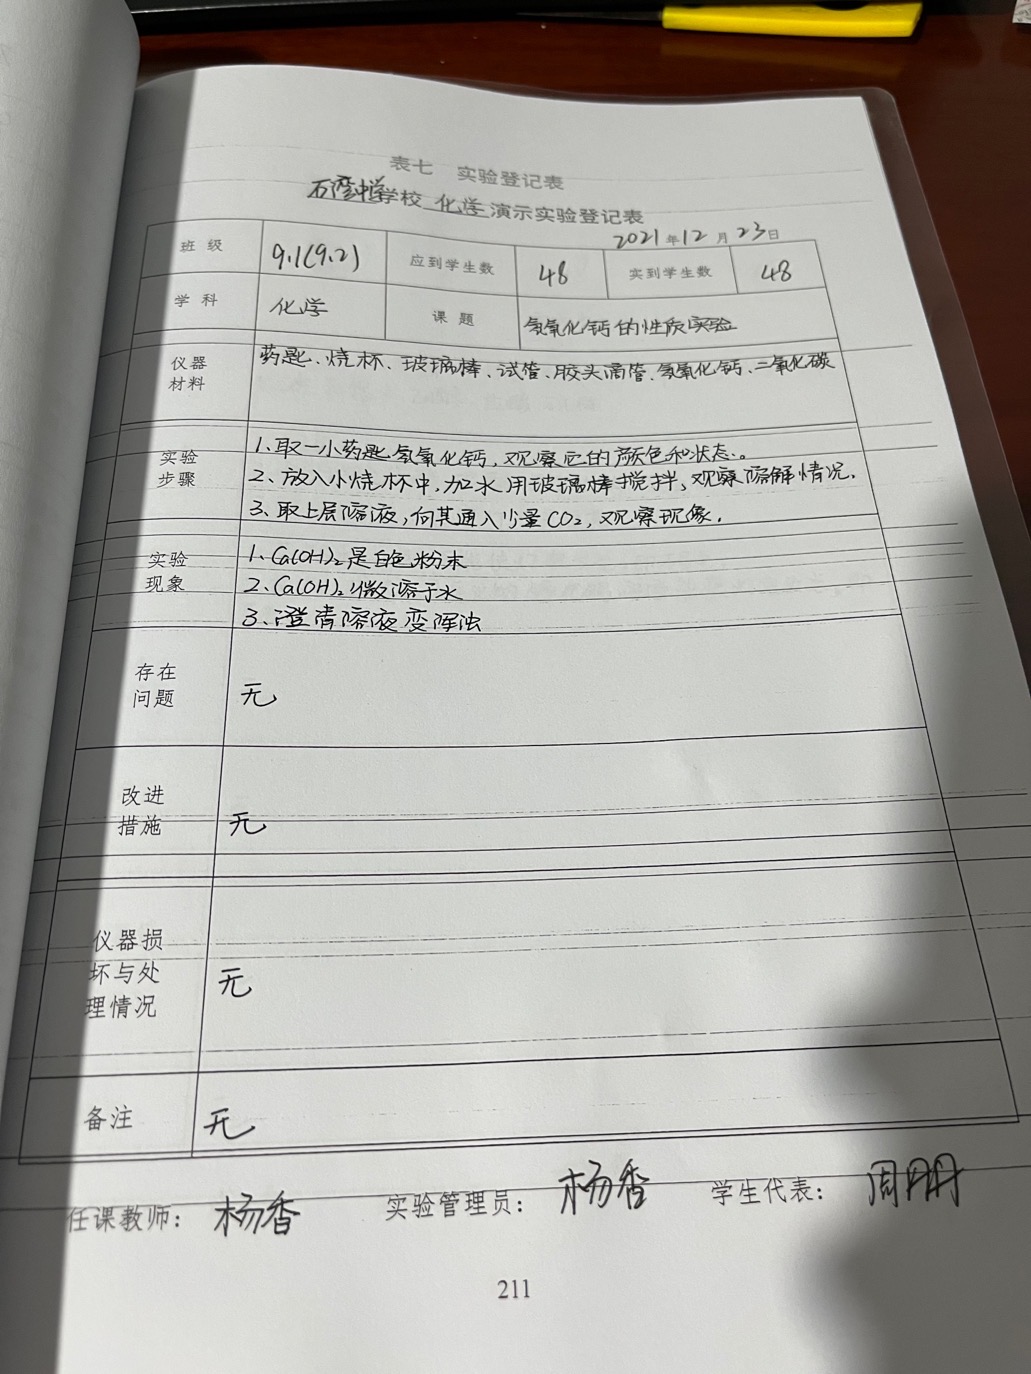 表七 实验登记表
石湾中学学校 化学 演示实验登记表
2021年12月23日
班级 9.1(9.2) 应到学生数 48 实到学生数 48
学科 化学 课题 氢氧化钙的性质实验
仪器材料 药匙、烧杯、玻璃棒、试管、胶头滴管、氢氧化钙、二氧化碳
实验步骤 1、取一小药匙氢氧化钙,观察它的颜色和状态。
2、放入小烧杯中,加水用玻璃棒搅拌,观察溶解情况.
3、取上层溶液,向其通入少量CO₂,观察现像.
实验现象 1、Ca(OH)₂是白色粉末
2、Ca(OH)₂微溶于水
3、澄清溶液变浑浊
存在问题 无
改进措施 无
仪器损坏与处理情况 无
备注 无
任课教师: 杨香 实验管理员: 杨香 学生代表: 周
211